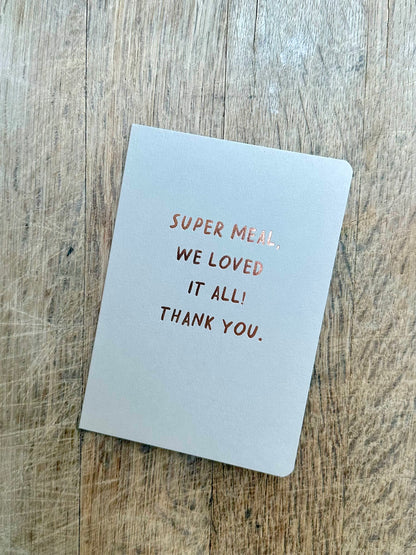 SUPER MEAL,
WE LOVED
IT ALL!
THANK YOU.